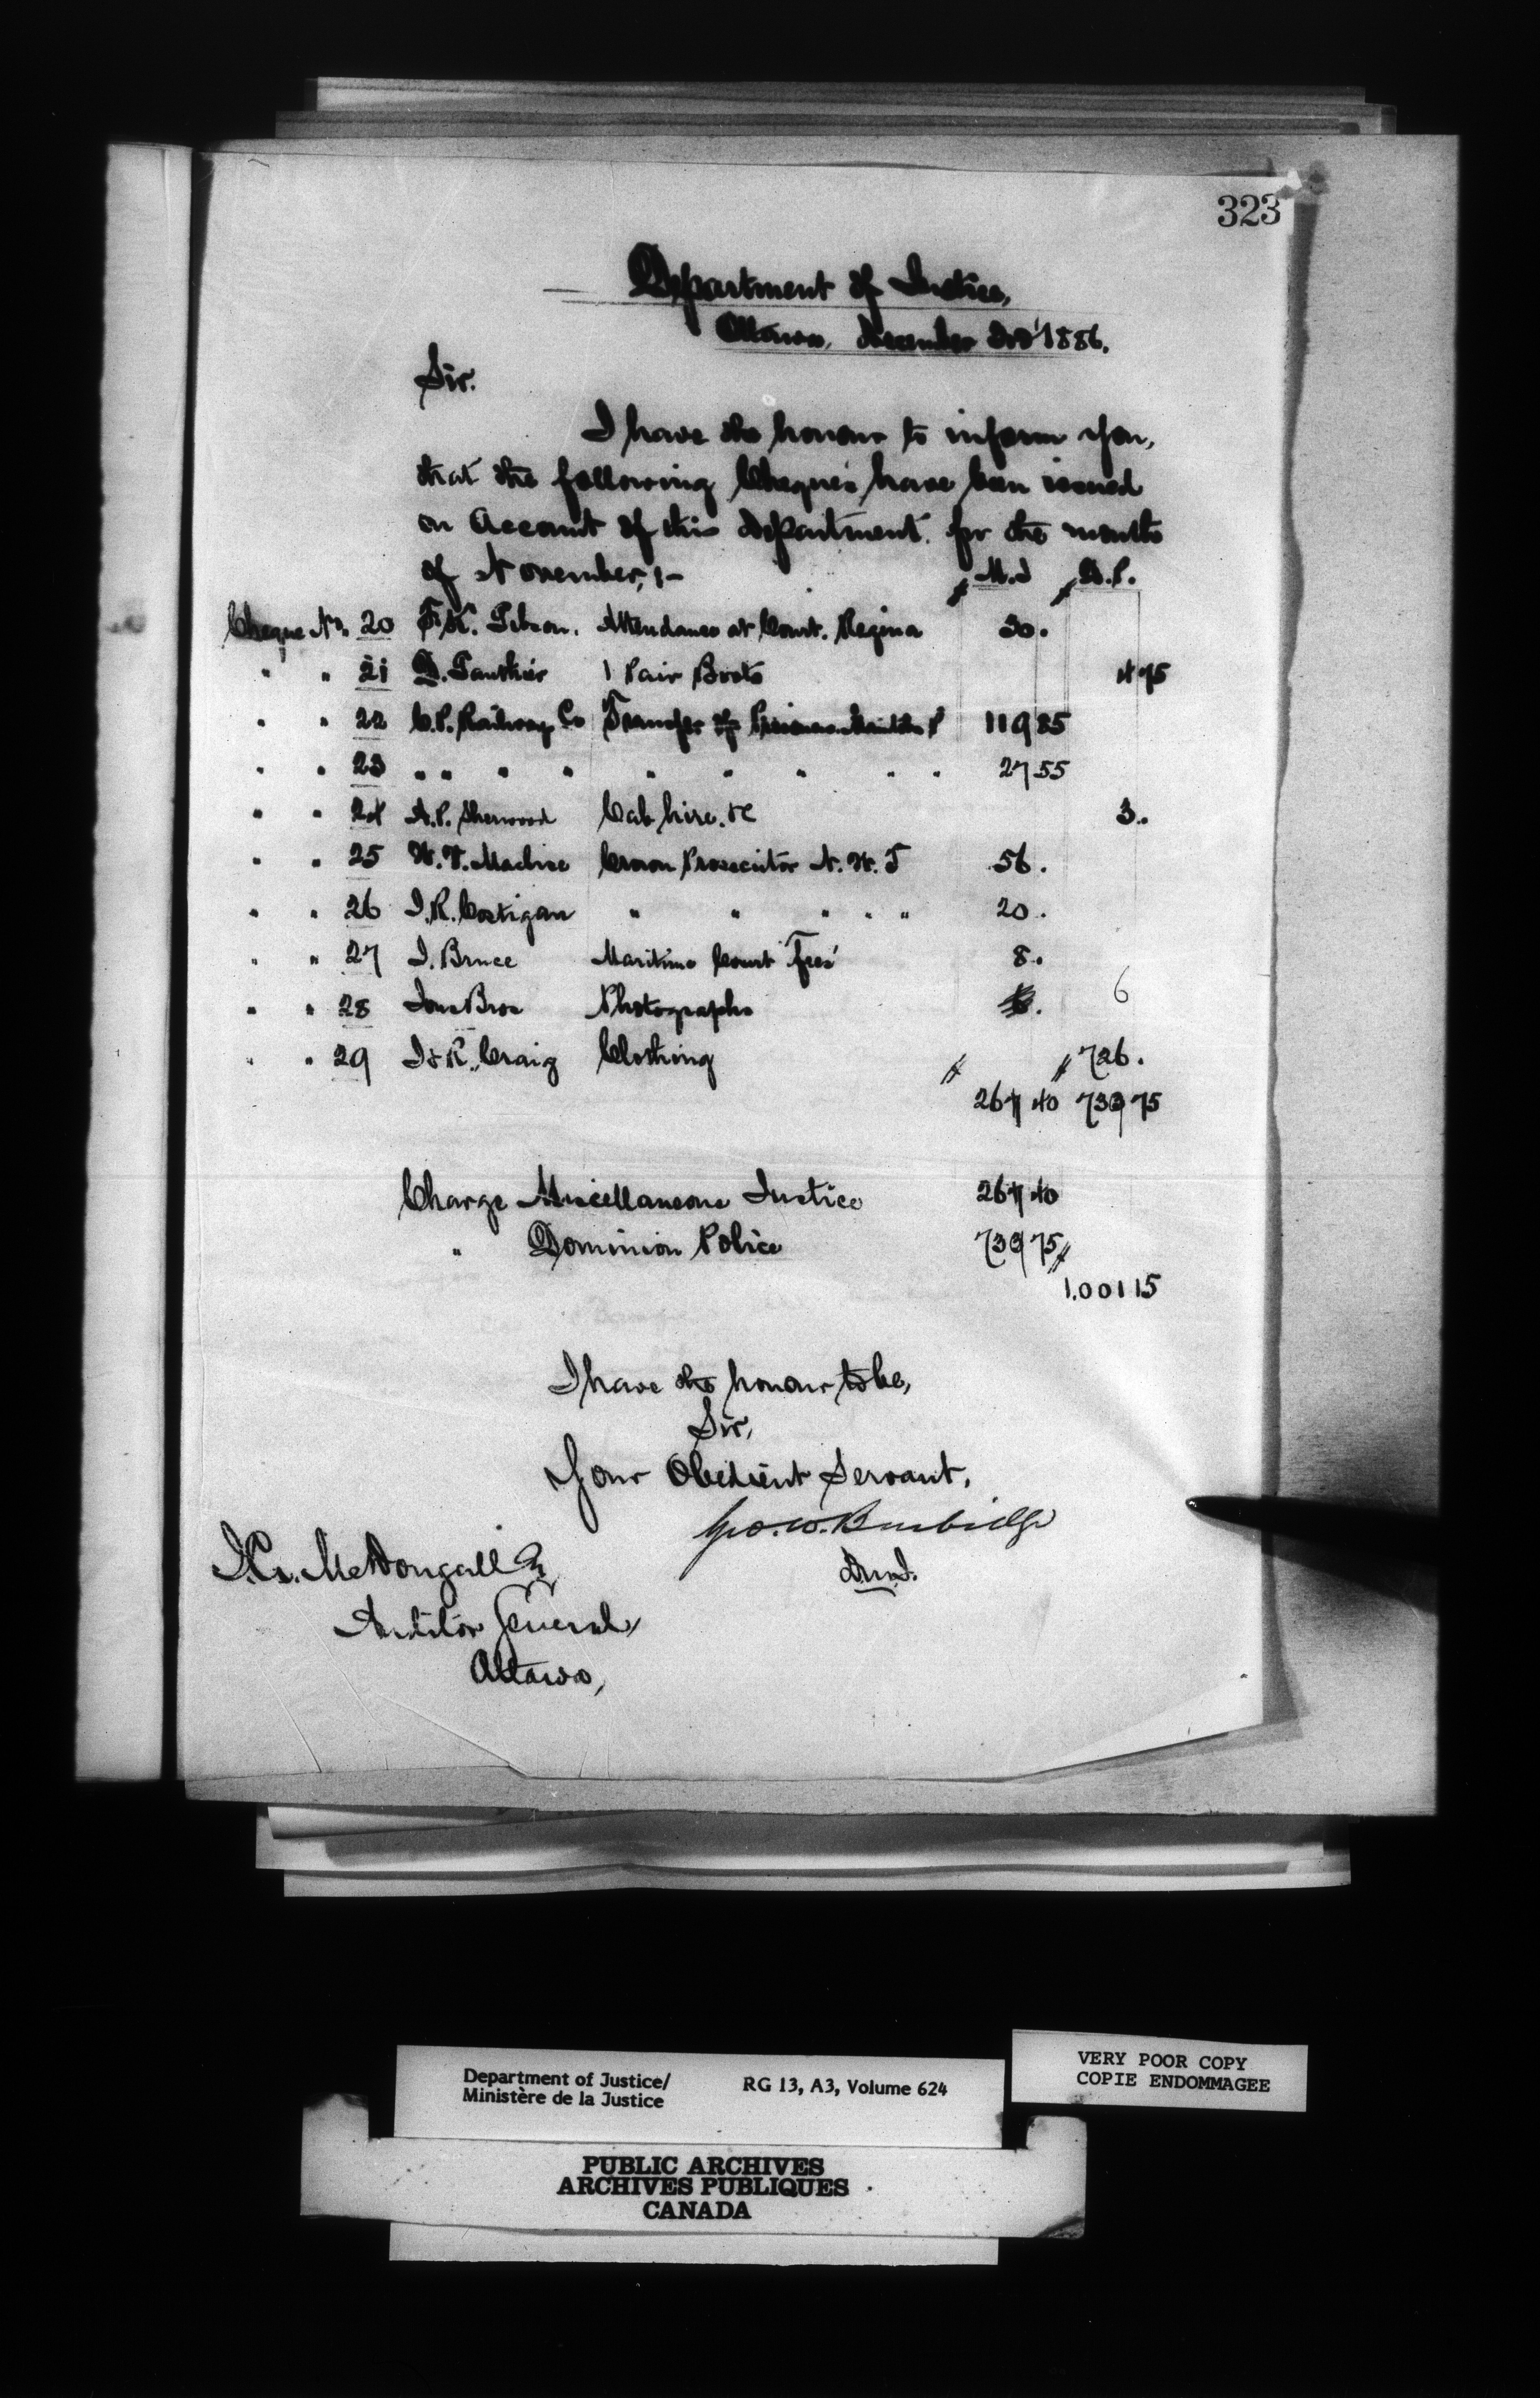 323
Department of Justice,
Ottawa, December 3rd 1886.
Sir.
I have the honour to inform you,
that the following Cheques have been issued
on Account of this department. for the month
of November,:-
$ M.J $ D.P.
Cheque No. 20 F.K. Gibson. Attendance at Court. Regina 30.
" " 21 D. Gauthier 1 Pair Boots 4 75
" " 22 C.P. Railway Co Transfer of Prisoners 119 85
" " 23 " " " " " " " " " 27 55
" " 24 A.P. Sherwood Cab hire. &c 3.
" " 25 Crown Prosecutor N.W.T 56.
" " 26 J.R. Costigan " " " " " 20.
" " 27 J. Bruce Maritime Court Fees 8.
" " 28 Bros Photographs 6
" " 29 J & R. Craig Clothing $ $ 726.
267 40 739 75
Charge Miscellaneous Justice 267 40
" Dominion Police 739 75 $
1.001 15
I have the honour to be,
Sir,
Your Obedient Servant,
Geo. W. Burbidge
D.M.J.
J.L. McDougall Esq
Auditor General,
Ottawa,
Department of Justice/ RG 13, A3, Volume 624
Ministère de la Justice
VERY POOR COPY
COPIE ENDOMMAGEE
PUBLIC ARCHIVES
ARCHIVES PUBLIQUES
CANADA